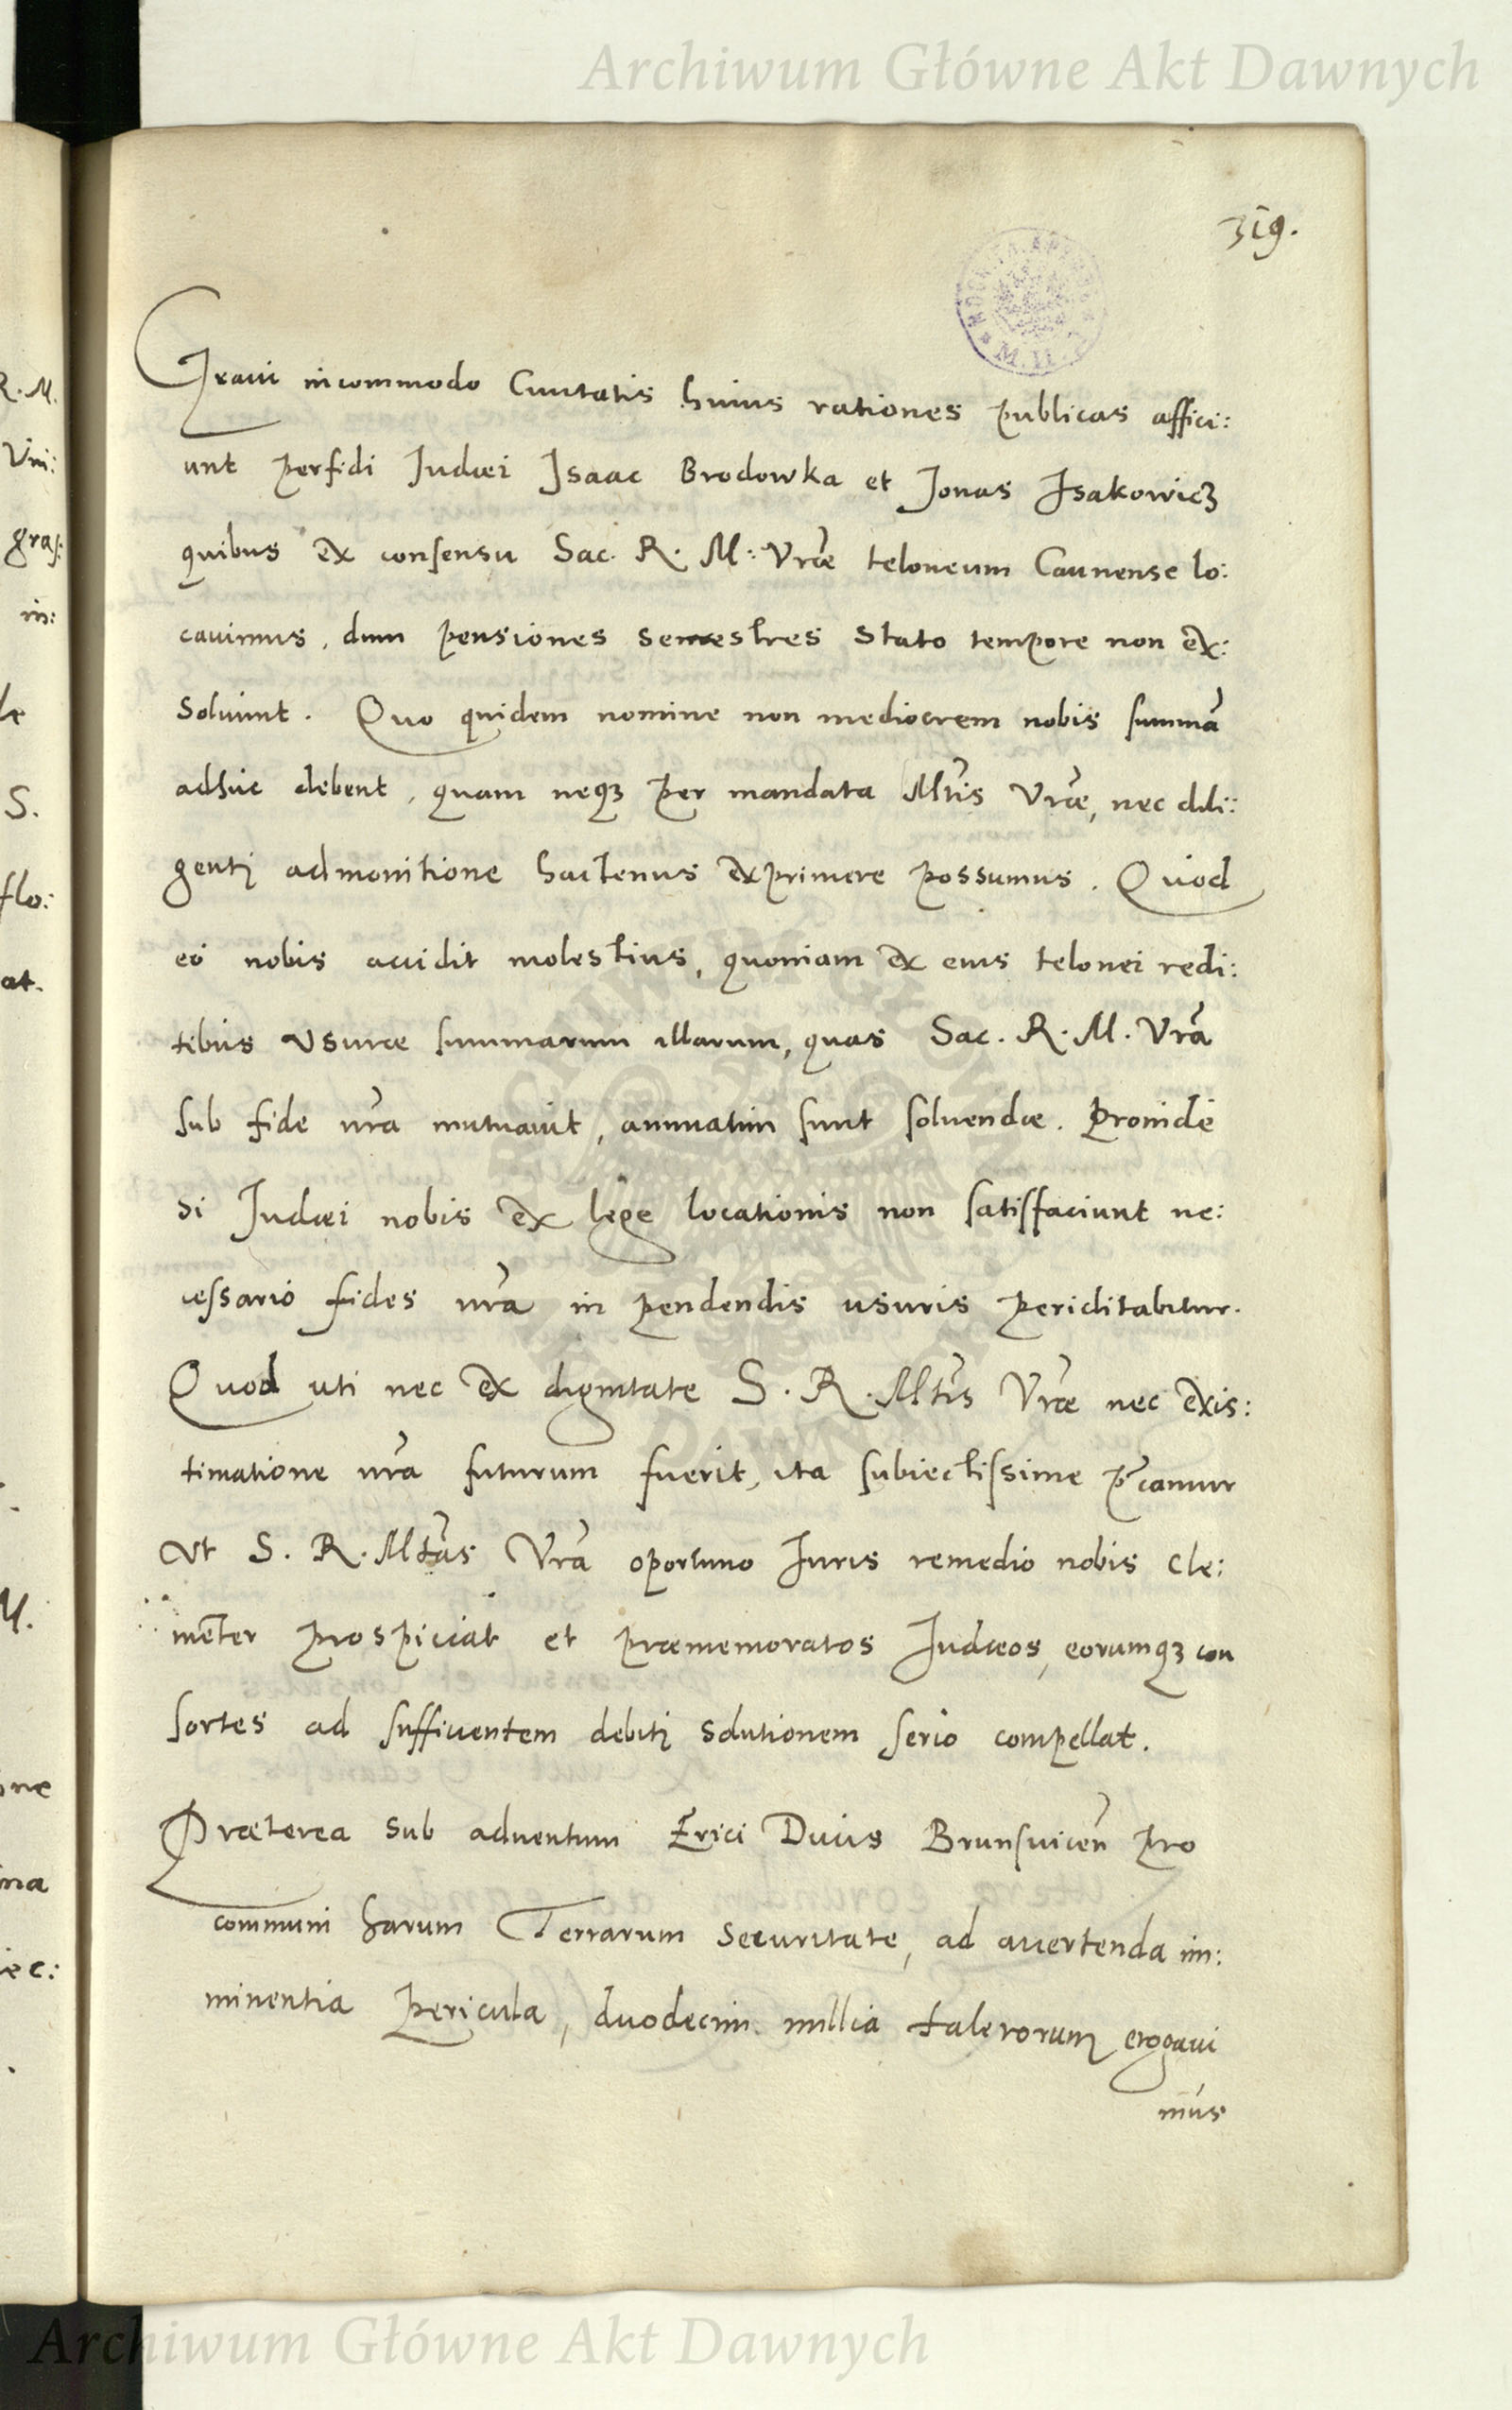 Archiwum Główne Akt Dawnych
319.
Graui incommodo Ciuitatis huius rationes publicas affici:
unt perfidi Judæi Isaac Brodowka et Jonas Isakowicz
quibus ex consensu Sac. R. M: Vræ teloneum Caunense lo:
cauimus, dum pensiones semestres stato tempore non ex:
soluunt. Quo quidem nomine non mediocrem nobis summã
adhuc debent, quam neqz per mandata Mtis Vræ, nec dili:
genti admonitione hactenus exprimere possumus. Quod
eò nobis accidit molestius, quoniam ex eius telonei redi:
tibus vsuræ summarum illarum, quas Sac. R. M. Vra
sub fide nra mutuauit, annuatim sunt soluendæ. Proinde
si Judæi nobis ex lege locationis non satisfaciunt ne:
cessario fides nra in pendendis usuris periclitabitur.
Quod uti nec ex dignitate S. R. Mtis Vræ nec exis:
timatione nra futurum fuerit, ita subiectissime pcamur
vt S. R. Mtas Vra oportuno Juris remedio nobis cle:
mẽter prospiciat et præmemoratos Judæos, eorumqz con
sortes ad sufficientem debiti solutionem serio compellat.
Præterea sub aduentum Erici Ducis Brunsuiceñ pro
communi harum Terrarum securitate, ad auertenda im:
minentia pericula, duodecim millia talerorum erogaui
mus
Archiwum Główne Akt Dawnych